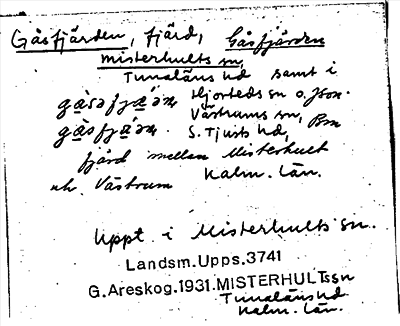 Gåsfjärden, fjärd, Gåsfjärden
Misterhults sn,
Tunaläns hd samt i
Hjorteds sn o.
Västrums sn,
S. Tjusts hd,
fjärd mellan Misterhult
och Västrum Kalm. län.
Uppt i Misterhults sn.
Landsm. Upps. 3741
G. Areskog. 1931. MISTERHULTs sn
Tunaläns hd
Kalm. län.